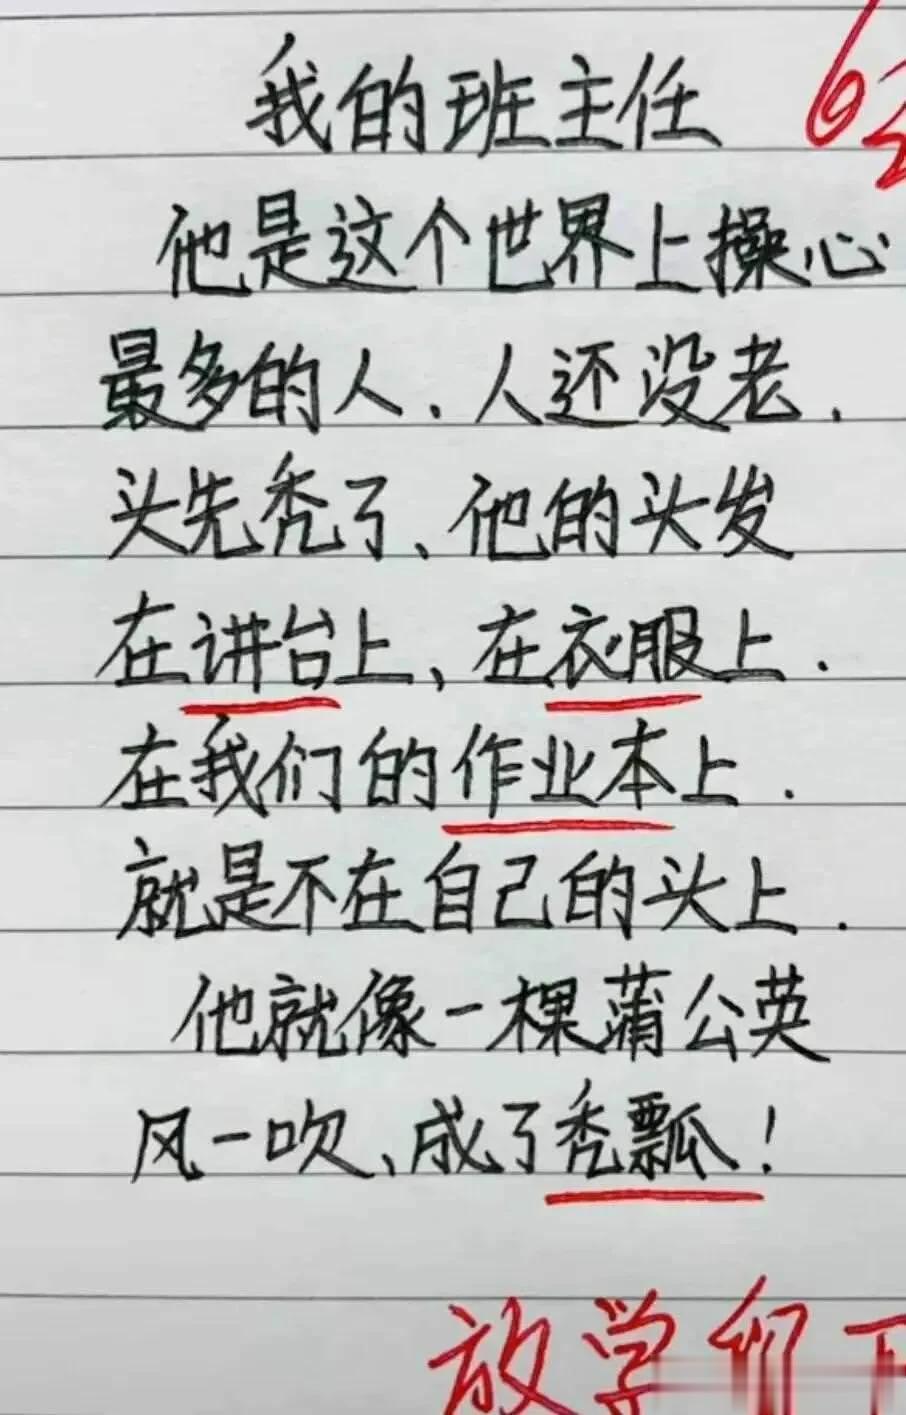 我的班主任
他是这个世界上操心
最多的人．人还没老．
头先秃了、他的头发
在讲台上、在衣服上．
在我们的作业本上．
就是不在自己的头上．
他就像一棵蒲公英
风一吹、成了秃瓢！
放学